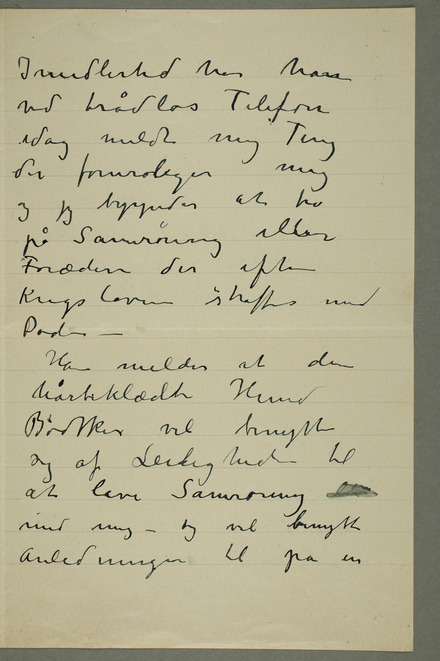 Imidlertid har han
ved trådløs Telefon
idag meldt mig Ting
der foruroliger mig
og jeg begynder at tro
på Samrøning eller
Foræderi der efter
Krigsloven straffes med
Døden —
Han melder at den
hårbeklædte Hund
Bödtker vil benytte
sig af Leiligheden til
at lave Samrøning
med mig — og vil benytte
Anledningen til på en